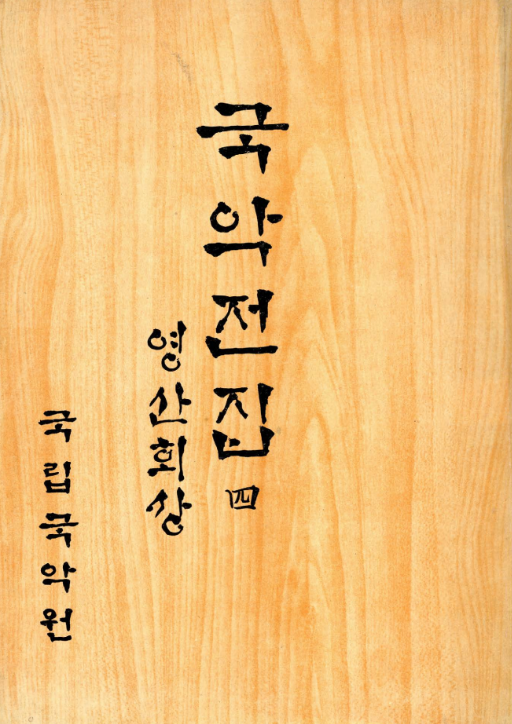 국악전집 四
영산회상
국립국악원